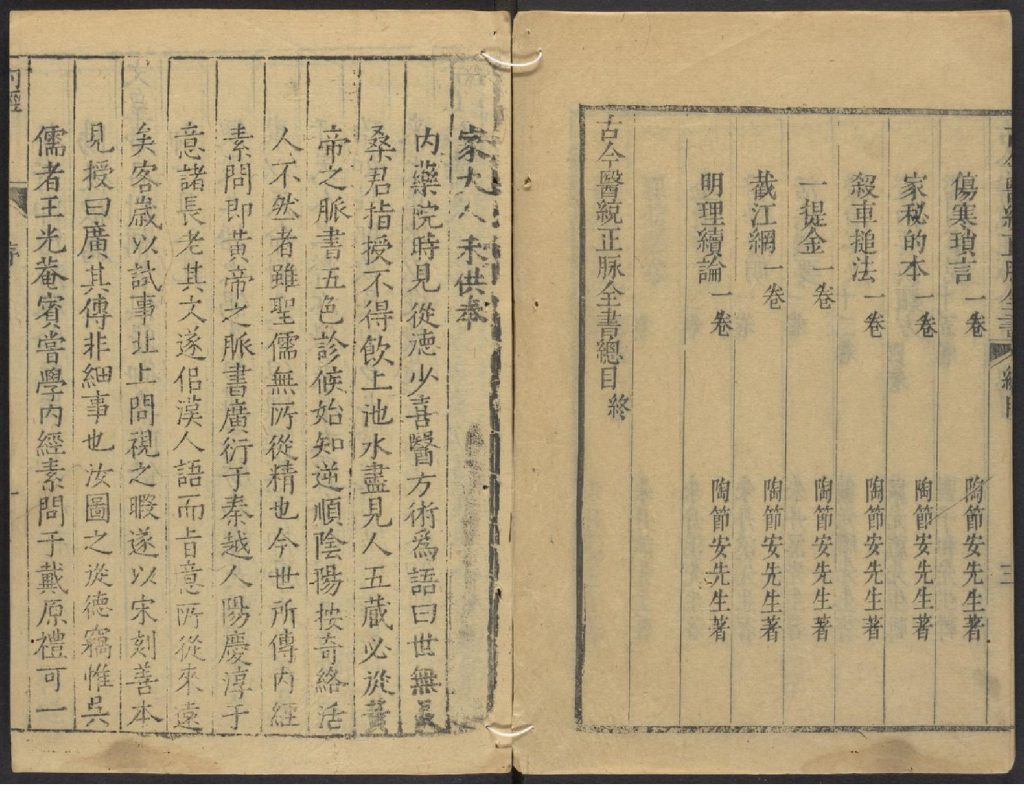 古今醫統正脉全書 總目 三
傷寒瑣言 一卷 陶節安先生著
家秘的本 一卷 陶節安先生著
殺車搥法 一卷 陶節安先生著
一提金 一卷 陶節安先生著
截江網 一卷 陶節安先生著
明理續論 一卷 陶節安先生著
古今醫統正脉全書總目 終
家大人未供奉
內藥院時見從德少喜醫方術爲語曰世無長
桑君指授不得飲上池水盡見人五藏必從黃
帝之脈書五色診候始知逆順陰陽按奇絡活
人不然者雖聖儒無所從精也今世所傳內經
素問即黃帝之脈書廣衍于秦越人陽慶淳于
意諸長老其文遂佀漢人語而旨意所從來遠
矣客歲以試事北上問視之暇遂以宋刻善本
見授曰廣其傳非細事也汝圖之從德竊惟吳
儒者王光菴賓嘗學內經素問于戴原禮可一
內經 序 一